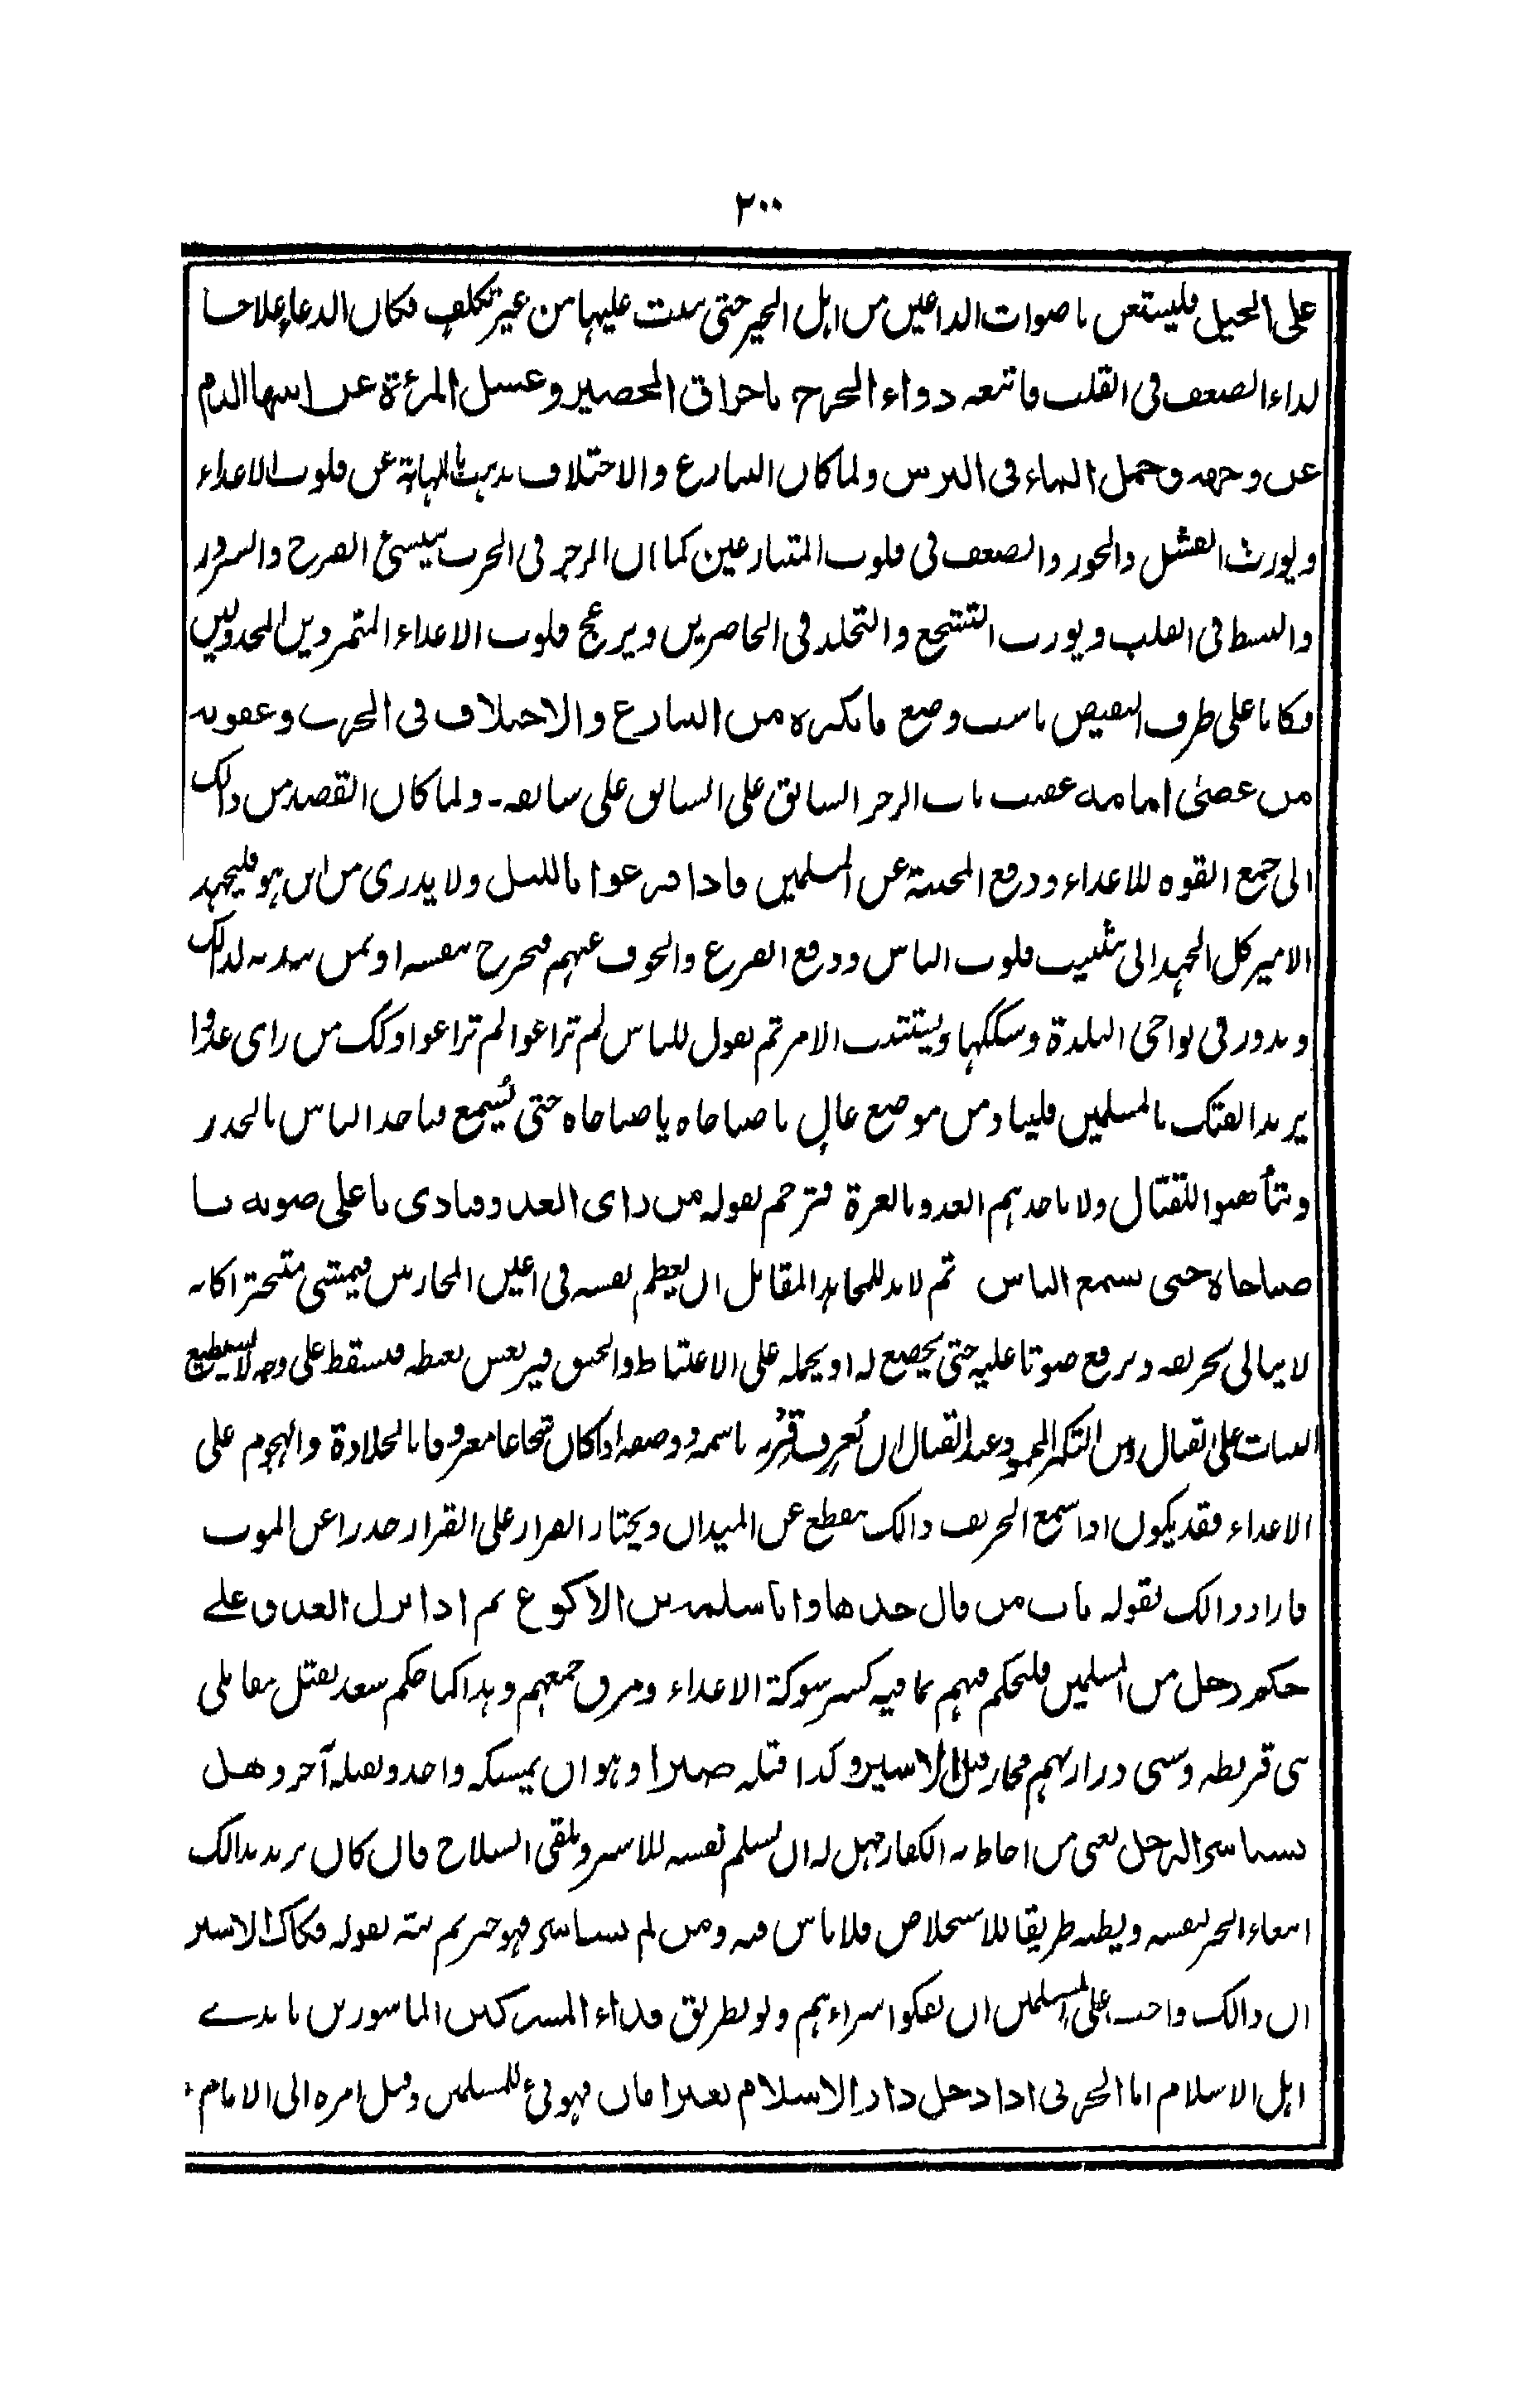 ٢٠٠
على الخيل فليستعن باصوات الداعين من اهل الخير حتى يثبت عليها من غير تكلف فكان الدعاء علاجا
لداء الضعف فى القلب فاتبعه دواء الجرح باحراق الحصير وغسل المرءة عن ابيها الدم
عن وجهه وحمل الماء فى الترس ولما كان التنازع والاختلاف يذهب بالمهابة عن قلوب الاعداء
ويورث الفشل والخور والضعف فى قلوب المتنازعين كما ان الرجز فى الحرب ينشئ الفرح والسرور
والبسط فى القلب ويورث التشجع والتجلد فى الحاضرين ويزعج قلوب الاعداء المتمردين المخذولين
فكانا على طرف النقيض ناسب وضع ما يكره من التنازع والاختلاف فى الحرب وعقوبة
من عصى امامه عقب باب الرجز السابق على السابق على سابقه - ولما كان القصد من ذالك
الى جمع القوه للاعداء ودفع المحنة عن المسلمين فاذا فزعوا بالليل ولا يدرى من اين هو فليجهد
الامير كل الجهد الى تثبيت قلوب الناس ودفع الفزع والخوف عنهم فيخرج بنفسه او بمن يندبه لذالك
ويدور فى نواحى البلدة وسككها ويتثبت الامر ثم يقول للناس لم تراعوا لم تراعوا وكك من راى عدوا
يريد الفتك بالمسلمين فليناد من موضع عال يا صباحاه يا صباحاه حتى يُسمع فياخذ الناس بالحذر
وتتأهبوا للقتال ولا ياخذهم العدو بالغرة فترجم لقوله من راى العدو فنادى باعلى صوته يا
صباحاه حتى يسمع الناس ثم لابد للمجاهد المقاتل ان يعظم نفسه فى اعين المحاربين فيمشى متبخترا كانه
لا يبالى بحريفه ويرفع صوتا عليه حتى يخضع له او يحمله على الاغتياظ والحنق فيرتعش بغيظه فيسقط على وجهه لا يستطيع
الثبات على القتال ومن التكبر المحمود عند القتال ان يُعرف قِرنُه باسمه ووصفه اذا كان شجاعا معروفا بالجلادة والهجوم على
الاعداء فقد يكون اذا سمع الحريف ذالك ينقطع عن الميدان ويختار الفرار على القرار حذرا عن الموت
فاراد ذالك بقوله باب من قال خذها وانا سلمة بن الاكوع ثم اذا نزل العدو على
حكم رجل من المسلمين فليحكم فيهم بما فيه كسر شوكة الاعداء وفرق جمعهم وهذا كما حكم سعد بقتل مقاتلى
بنى قريظه وسبى ذراريهم فجاز قتل الاسير وكذا قتله صبرا وهو ان يمسكه واحد ويقتله آخر وهل
يستاسر الرجل يعنى من احاط به الكفار فهل له ان يسلم نفسه للاسر ويلقى السلاح فان كان يريد بذالك
ابتغاء الخير لنفسه ويظنه طريقا للاستخلاص فلا باس فيه ومن لم يستاسر فهو خير ثم نبه بقوله فكاك الاسير
ان ذالك واجب على المسلمين ان يفكوا اسراءهم ولو بطريق فداء المشركين الماسورين بايدى
اهل الاسلام اما الحربى اذا دخل دار الاسلام بغير امان فهو فئ للمسلمين وقيل امره الى الامام